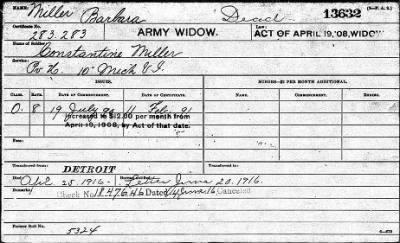 NAME: Miller Barbara Dead 13632
Certificate No. 283.283 ARMY WIDOW. ACT OF APRIL 19, '08, WIDOW
Name of Soldier: Constantine Miller
Service: Co. H. 10" Mich V.I.
ISSUES. MINORS—$2 PER MONTH ADDITIONAL.
CLASS. RATE. DATE OF COMMENCEMENT. DATE OF CERTIFICATE. DATE OF COMMENCEMENT.
O. 8 19 July 90 11 Feb. 91
Increased to $12.00 per month from
April 19, 1908, by Act of that date.
Fee:
Transferred from DETROIT Transferred to
Died Apl. 25. 1916. Letter June 20. 1916.
Remarks: Check No. 1847646 Dated 4 June 16 Canceled
Former Roll No. 5324